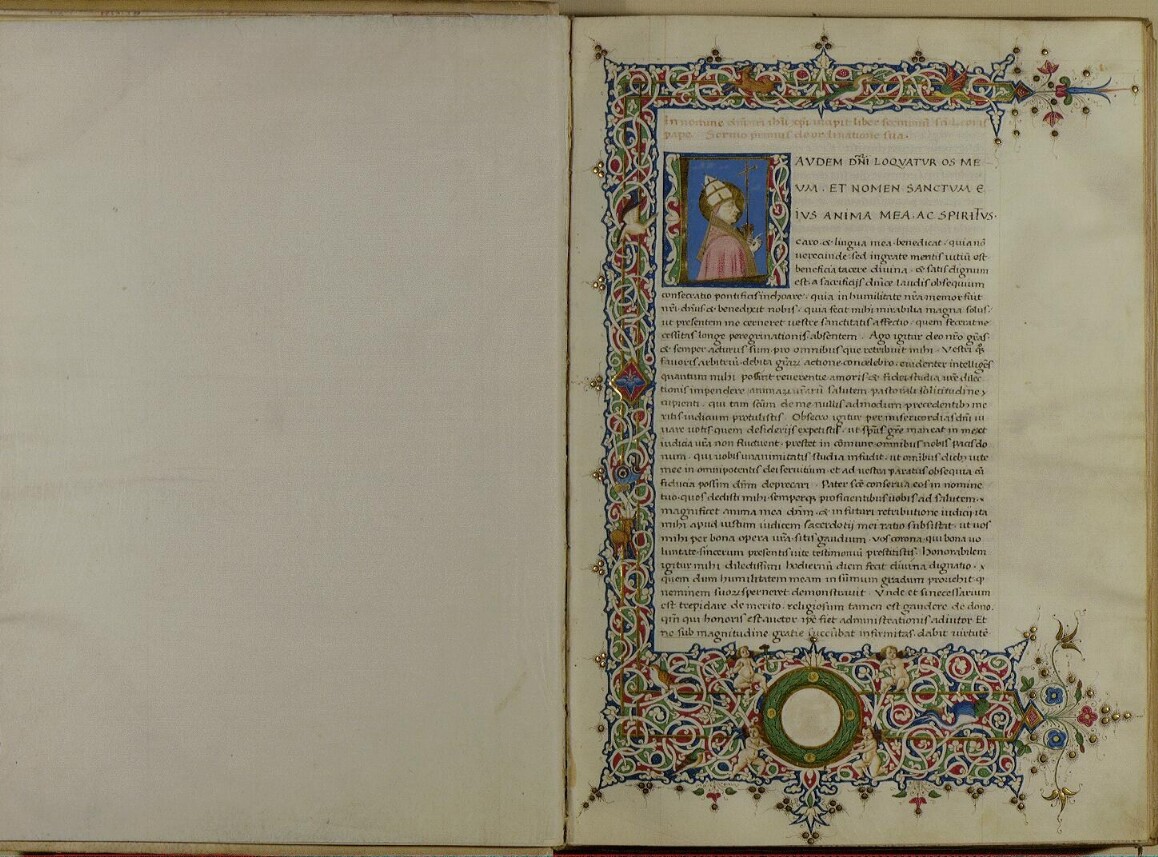 In nomine dñi ihũ xpi incipit liber sermonũ sci leonis
pape. Sermo primus de ordinatione sua.
AVDEM DÑI LOQVATVR OS ME
VM. ET NOMEN SANCTVM E
IVS ANIMA MEA. AC SPIRITVS.
caro & lingua mea benedicat. quia nõ
uerecunde sed ingrate mentis uitiũ est
beneficia tacere diuina. & satis dignum
est a sacrificijs dnice laudis obsequium
consecrati pontificis inchoare. quia in humilitate nr̃a memor fuit
nr̃i dñus & benedixit nobis. quia fecit mihi mirabilia magna solus.
ut presentem me cerneret uestre sanctitatis affectio. quem fecerat ne
cessitas longe peregrinationis absentem. Ago igitur deo nr̃o gr̃as
& semper acturus sum pro omnibus que retribuit mihi. Vestri q̃
fauoris arbitriũ debita gr̃aꝝ actione concelebro. euidenter intelligẽs
quantum mihi possint reuerentie amoris & fidei studia ur̃e dilec
tionis impendere animaꝝ ur̃arũ salutem pastorali solicitudine
cupienti. qui tam scũm de me nullis admodum precedentibus me
ritis iudicium protulistis. Obsecro igitur per misericordias dñi iu
uare uotis quem desiderijs expetistis. ut sp̃us gr̃e maneat in me &
iudicia ur̃a non fluctuent. prestet in cõmune omnibus nobis pacis do
num. qui uobis unanimitatis studia infudit. ut omnibus diebus uite
mee in omnipotentis dei seruitium. et ad uestra paratus obsequia cũ
fiducia possim dñm deprecari. Pater sc̃e conserua eos in nomine
tuo. quos dedisti mihi. semperq̃ proficientibus uobis ad salutem.
magnificet anima mea dñm. & in futuri retributione iudicij ita
mihi apud iustum iudicem sacerdotij mei ratio subsistat. ut uos
mihi per bona opera ur̃a. sitis gaudium. uos corona. qui bona uo
luntate sincerum presentis uite testimoniũ prestitistis. Honorabilem
igitur mihi dilectissimi hodiernũ diem fecit diuina dignatio.
quem dum humilitatem meam in sũmum gradum prouehit q̃
neminem suoꝝ sperneret demonstrauit. Vnde et si necessarium
est trepidare de merito. religiosum tamen est gaudere de dono.
qm̃ qui honoris est auctor ip̃e fiet administrationis adiutor Et
ne sub magnitudine gratie succũbat infirmitas dabit uirtutẽ